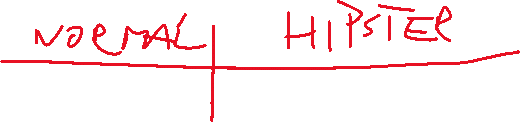 NORMAL HIPSTER